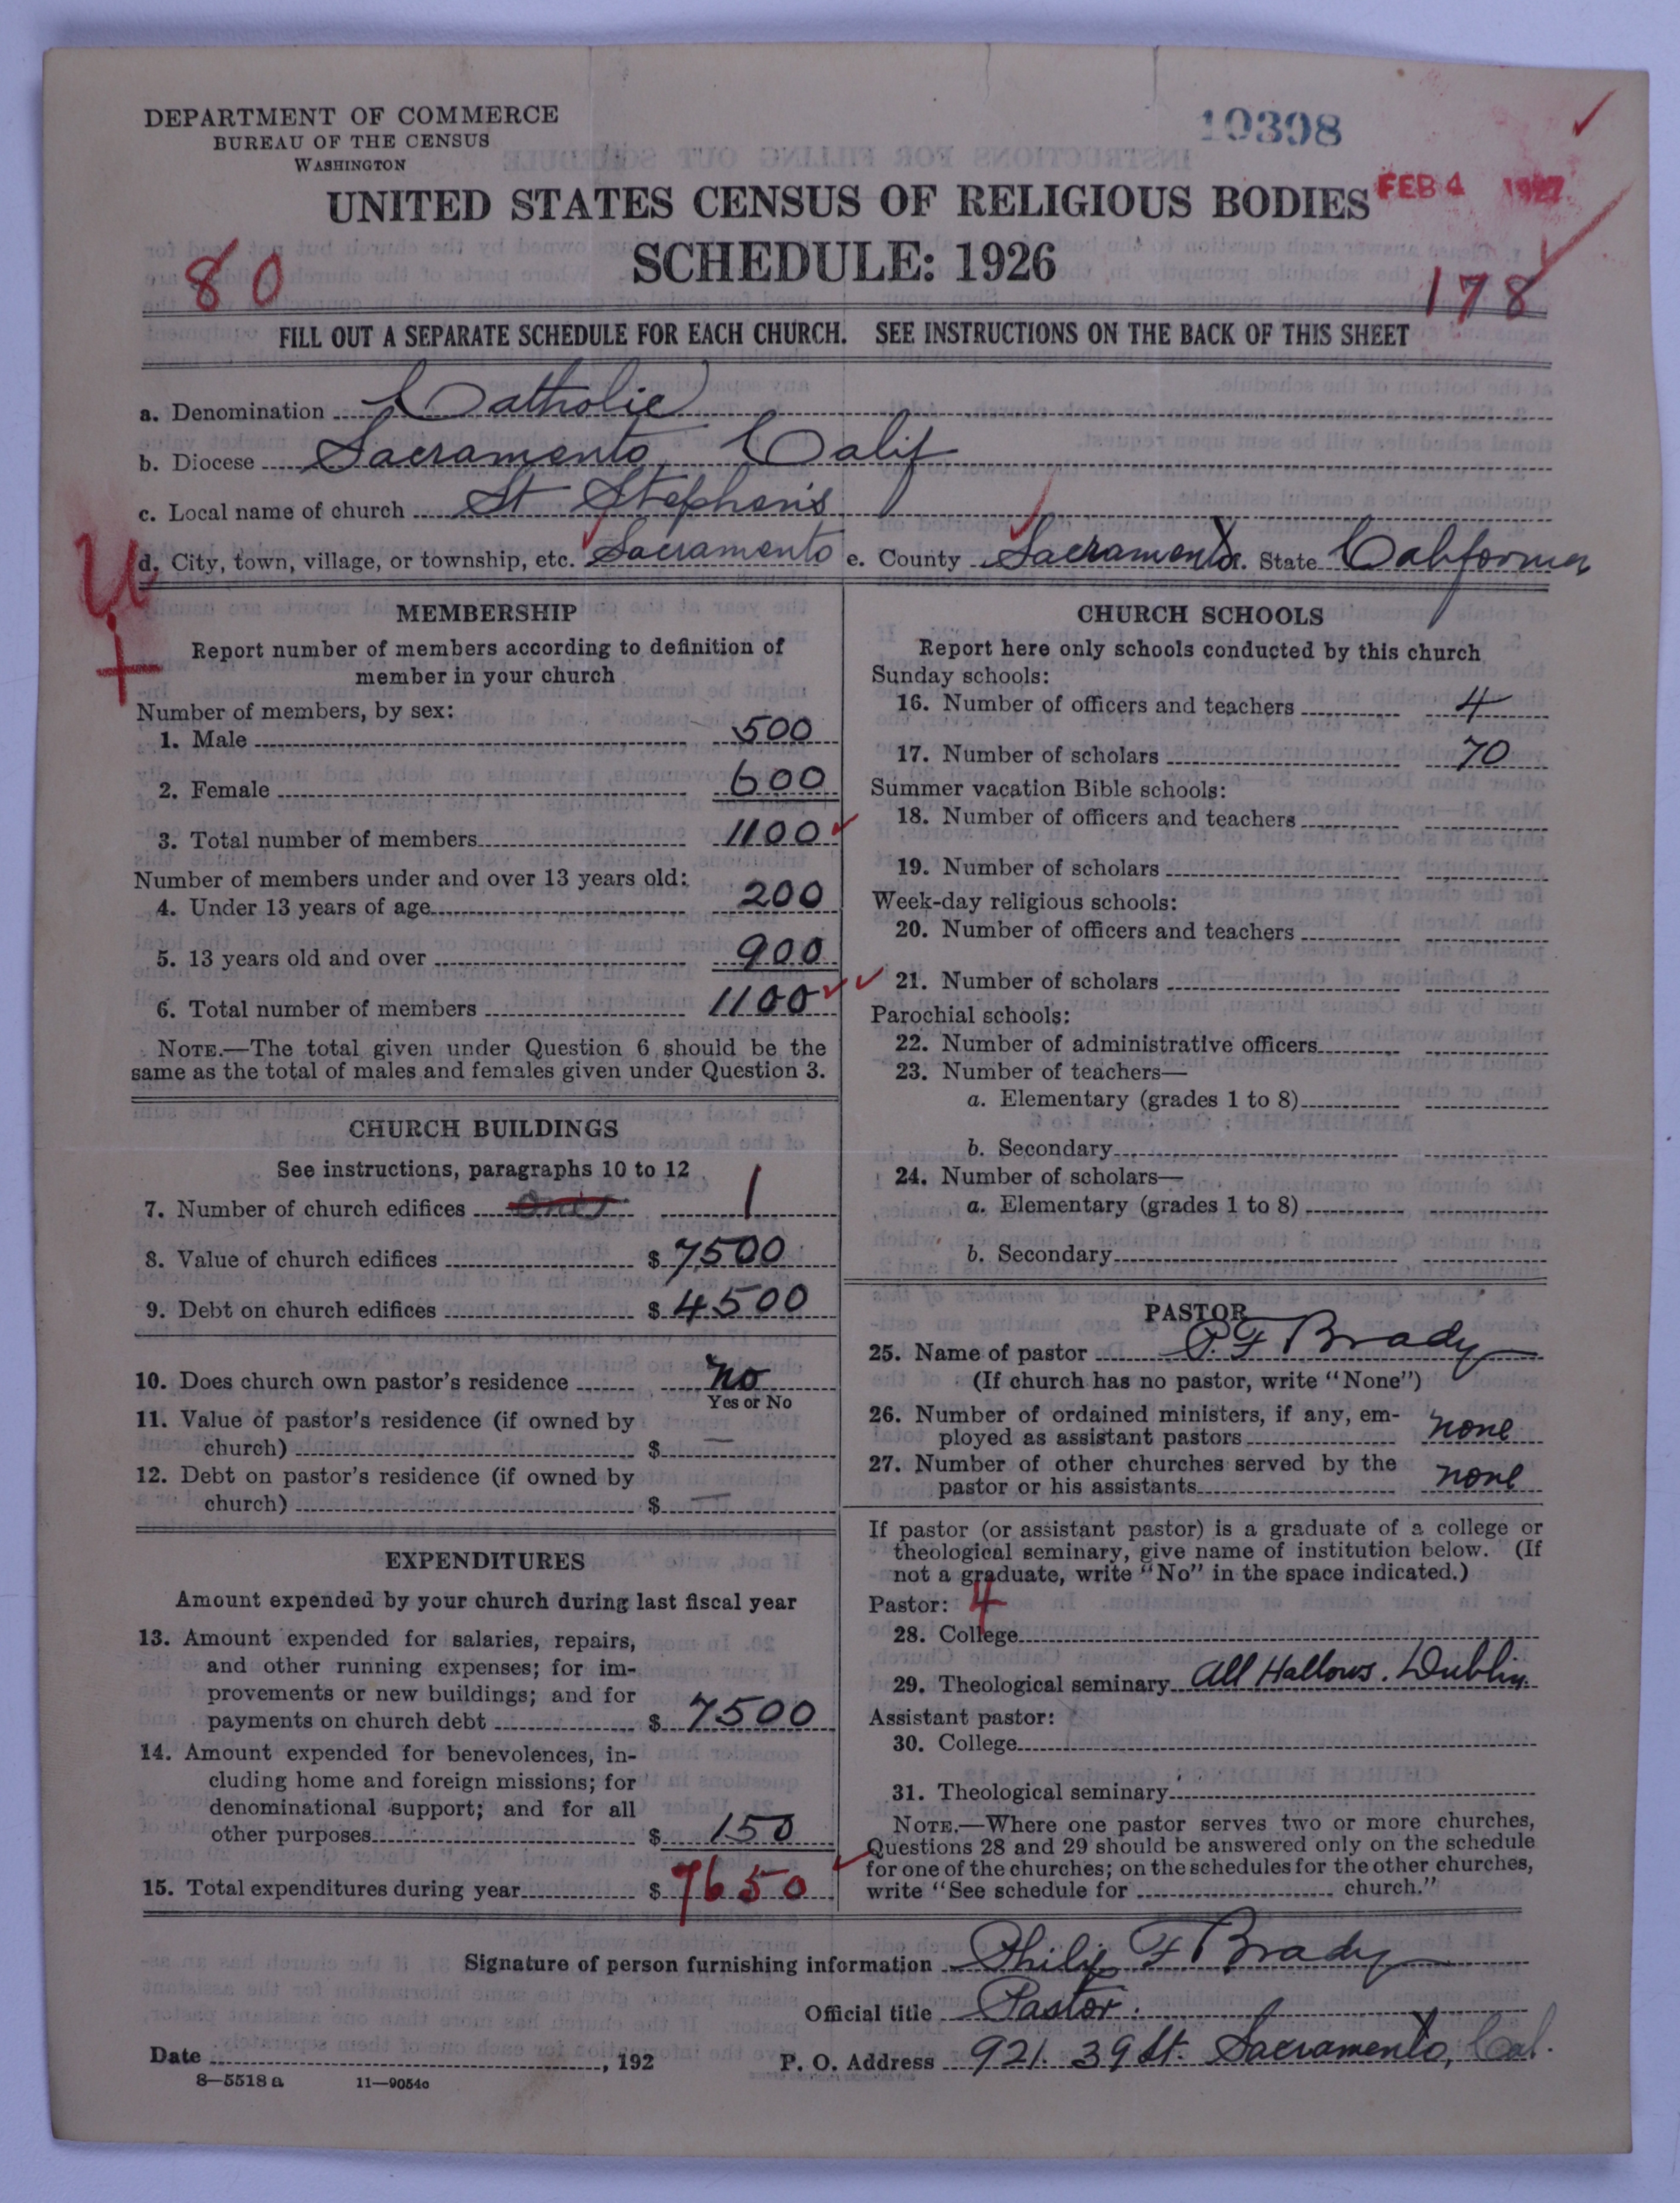 DEPARTMENT OF COMMERCE
BUREAU OF THE CENSUS
WASHINGTON
10398
FEB 4 1927
UNITED STATES CENSUS OF RELIGIOUS BODIES
SCHEDULE: 1926
80
178
FILL OUT A SEPARATE SCHEDULE FOR EACH CHURCH. SEE INSTRUCTIONS ON THE BACK OF THIS SHEET
a. Denomination Catholic
b. Diocese Sacramento, Calif
c. Local name of church St Stephen's
d. City, town, village, or township, etc. Sacramento e. County Sacramento f. State California
MEMBERSHIP
Report number of members according to definition of
member in your church
Number of members, by sex:
1. Male 500
2. Female 600
3. Total number of members 1100
Number of members under and over 13 years old:
4. Under 13 years of age 200
5. 13 years old and over 900
6. Total number of members 1100
NOTE.—The total given under Question 6 should be the
same as the total of males and females given under Question 3.
CHURCH BUILDINGS
See instructions, paragraphs 10 to 12
7. Number of church edifices one 1
8. Value of church edifices $ 7500
9. Debt on church edifices $ 4500
10. Does church own pastor's residence no
Yes or No
11. Value of pastor's residence (if owned by
church) $ —
12. Debt on pastor's residence (if owned by
church) $ —
EXPENDITURES
Amount expended by your church during last fiscal year
13. Amount expended for salaries, repairs,
and other running expenses; for im-
provements or new buildings; and for
payments on church debt $ 7500
14. Amount expended for benevolences, in-
cluding home and foreign missions; for
denominational support; and for all
other purposes $ 150
15. Total expenditures during year $ 7650
CHURCH SCHOOLS
Report here only schools conducted by this church
Sunday schools:
16. Number of officers and teachers 4
17. Number of scholars 70
Summer vacation Bible schools:
18. Number of officers and teachers
19. Number of scholars
Week-day religious schools:
20. Number of officers and teachers
21. Number of scholars
Parochial schools:
22. Number of administrative officers
23. Number of teachers—
a. Elementary (grades 1 to 8)
b. Secondary
24. Number of scholars—
a. Elementary (grades 1 to 8)
b. Secondary
PASTOR
25. Name of pastor P. F Brady
(If church has no pastor, write "None")
26. Number of ordained ministers, if any, em-
ployed as assistant pastors none
27. Number of other churches served by the
pastor or his assistants none
If pastor (or assistant pastor) is a graduate of a college or
theological seminary, give name of institution below. (If
not a graduate, write "No" in the space indicated.)
Pastor: 4
28. College
29. Theological seminary All Hallows. Dublin.
Assistant pastor:
30. College
31. Theological seminary
NOTE.—Where one pastor serves two or more churches,
Questions 28 and 29 should be answered only on the schedule
for one of the churches; on the schedules for the other churches,
write "See schedule for church."
Signature of person furnishing information Philip F Brady
Official title Pastor.
Date , 192
P. O. Address 921. 39 St. Sacramento, Cal.
8—5518 a 11—9054c